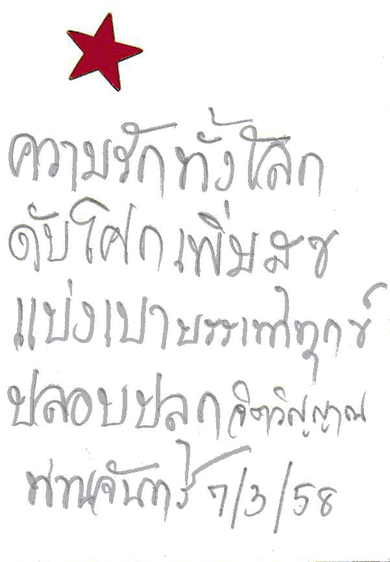 ความรักทั้งโลก
ดับโศกเพิ่มสุข
แบ่งเบาบรรเทาทุกข์
ปลอบปลุกจิตวิญญาณ
ท่านจันทร์ 7/3/58